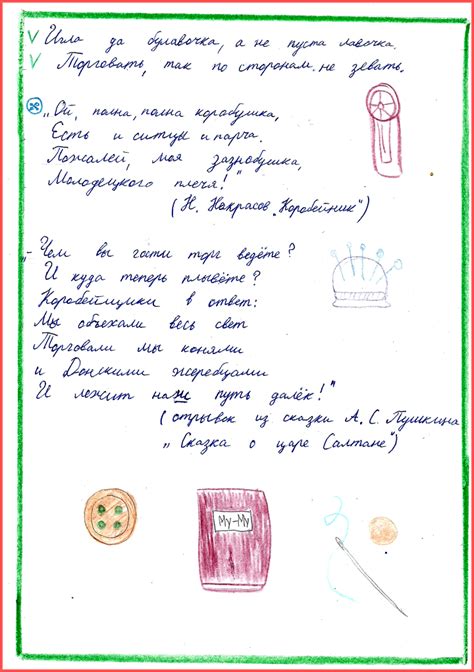 √ Игла да булавочка, а не пуста лавочка.
√ Торговать, так по сторонам не зевать.
„Ой, полна, полна коробушка,
Есть и ситцы и парча.
Пожалей, моя зазнобушка,
Молодецкого плеча!"
(Н. Некрасов „Коробейник")
„- Чем вы гости торг ведёте?
И куда теперь плывёте?
Коробейщики в ответ:
Мы объехали весь свет
Торговали мы конями
и Донскими жеребцами
И лежит наж путь далёк!"
(отрывок из сказки А.С. Пушкина
„Сказка о царе Салтане")
Му-Му